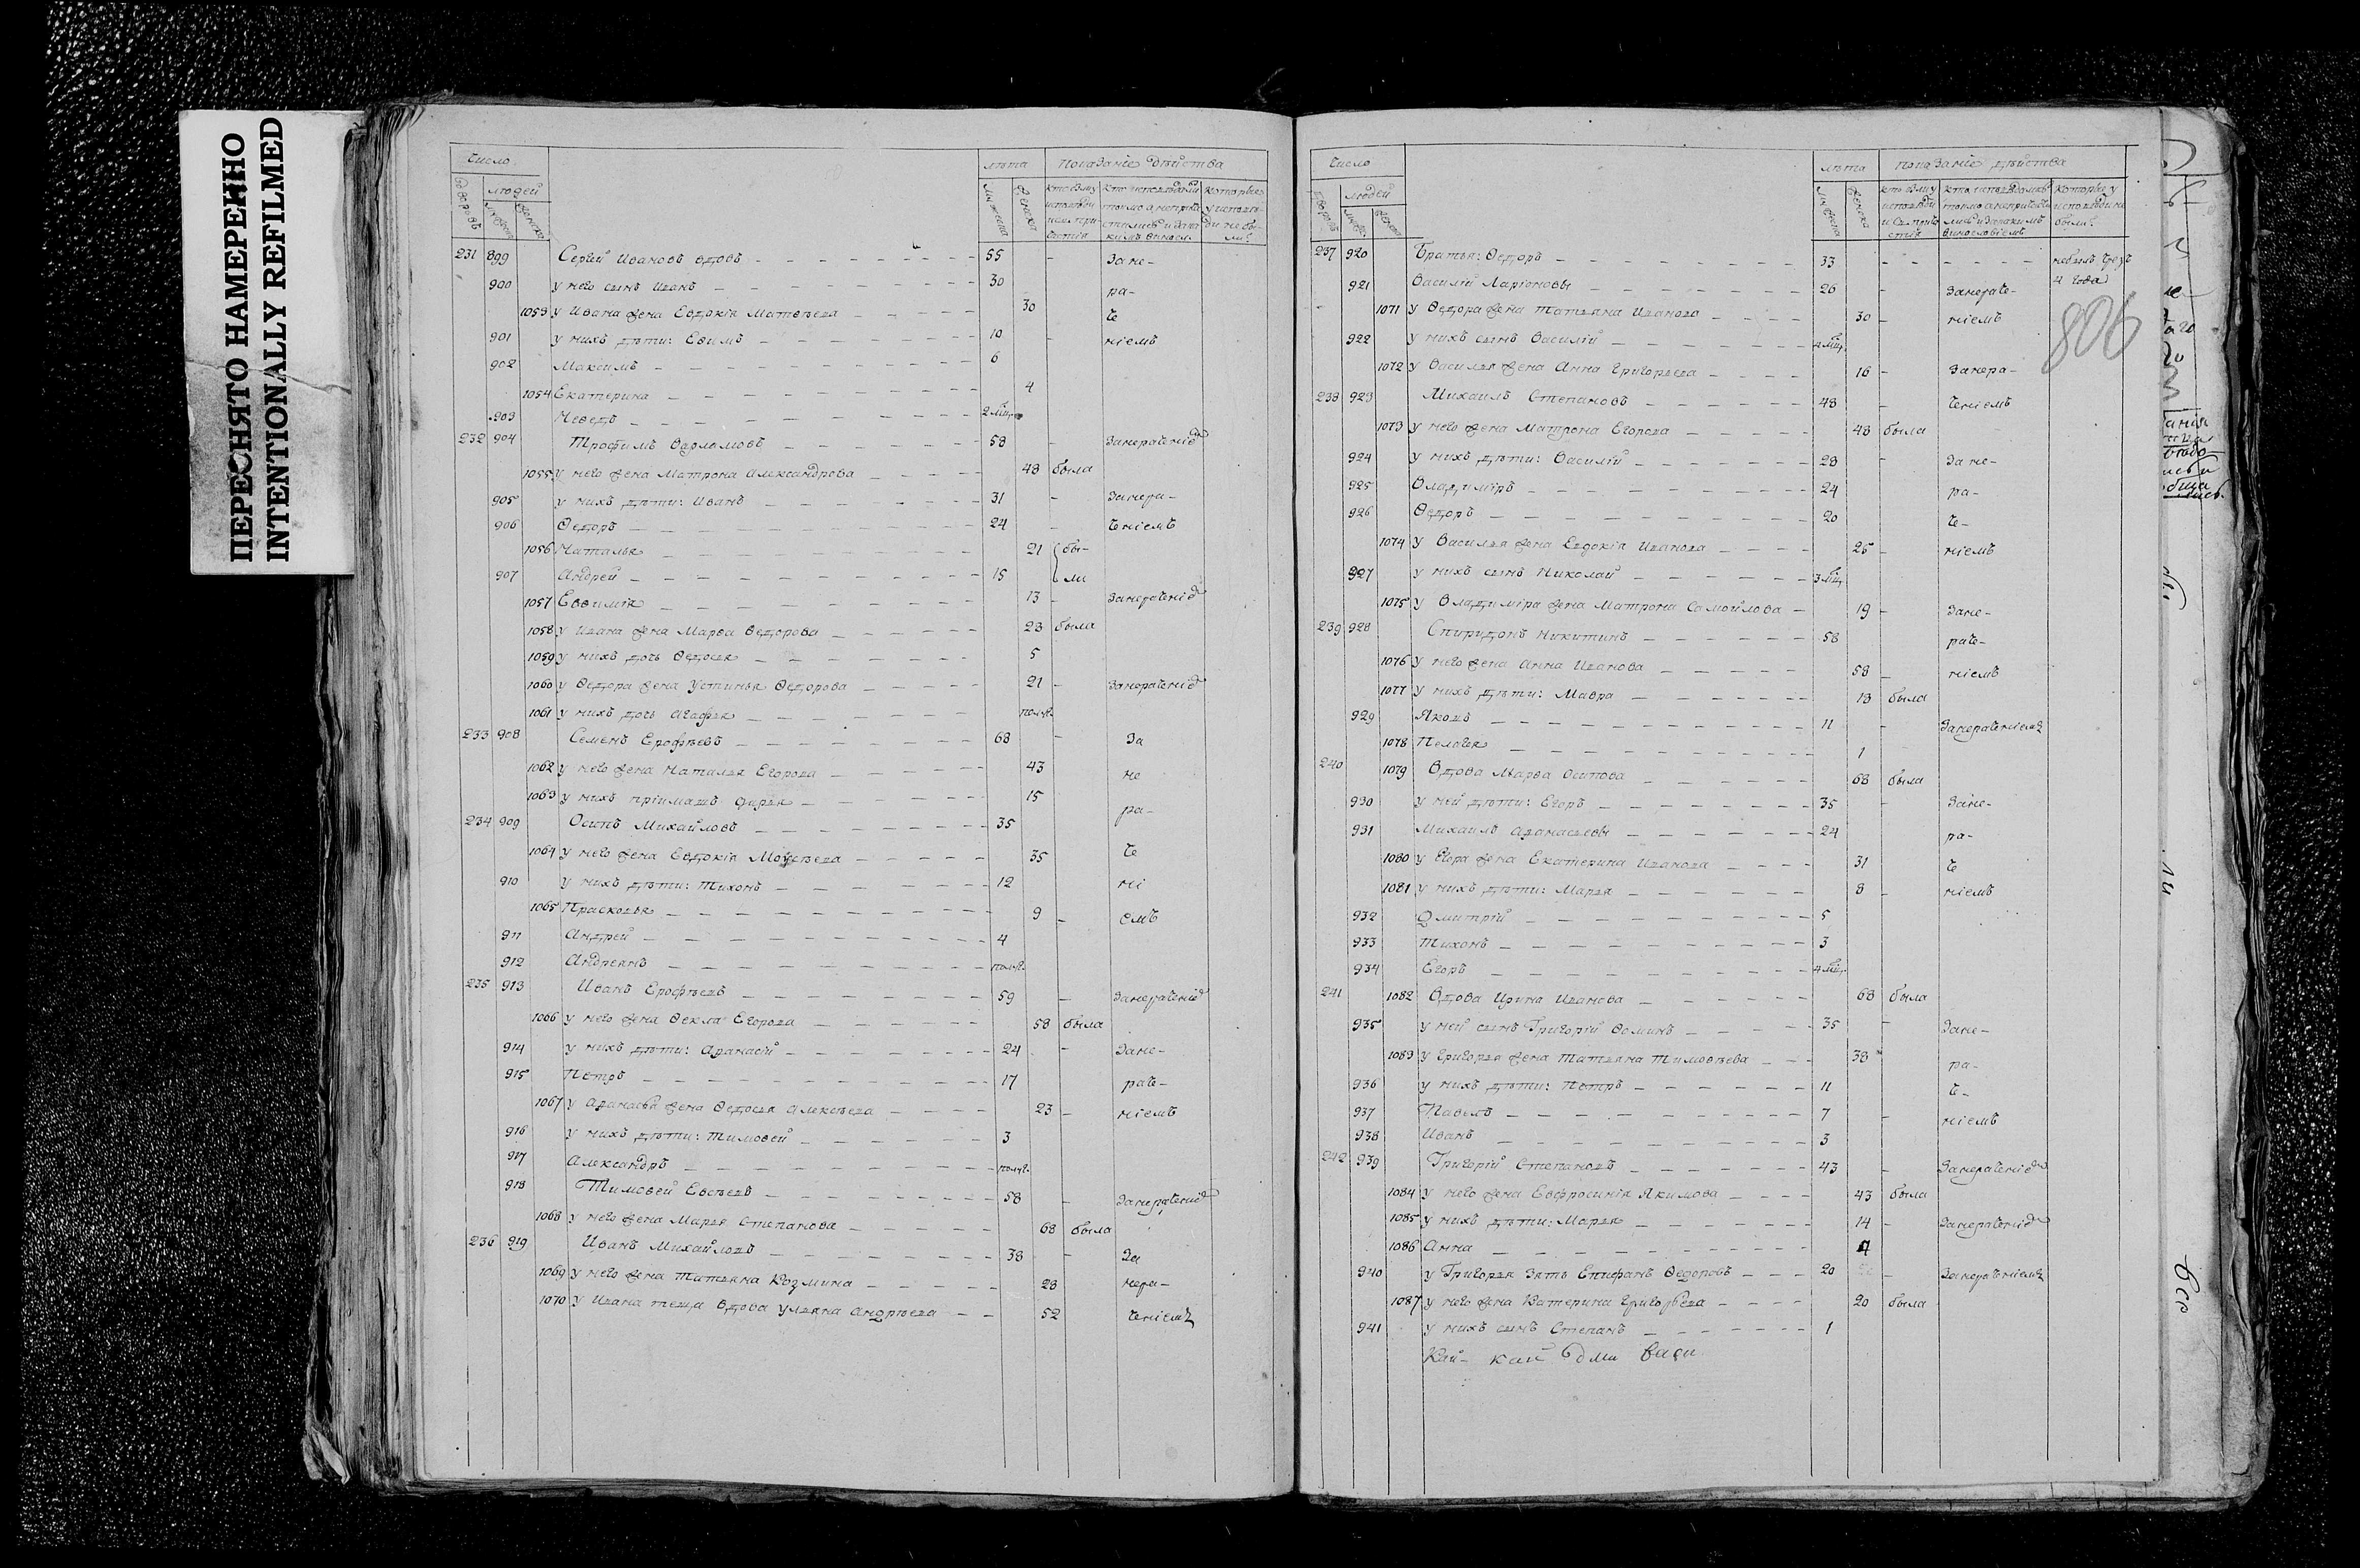 ПЕРЕСНЯТО НАМЕРЕННО
INTENTIONALLY REFILMED
Число
лѣта
Показаніе дѣйства
людей
231 899 Сергѣй Ивановъ вдовъ 55 - Зане-
900 у него сынъ Иванъ 30 ра-
1053 у Ивана жена Евдокія Матвѣева 30 че
901 у нихъ дѣти: Ефимъ 10 - ніемъ
902 Максимъ 6
1054 Екатерина 4
903 Мефедъ 2 мѣц
232 904 Трофимъ Варламовъ 58 - Занераченіе
1055 у него жена Матрона Александрова 48 была
905 у нихъ дѣти: Иванъ 31 - Занера-
906 Ѳедоръ 24 - ченіемъ
1056 Наталья 21 бы-
907 Андрей 15 ли
1057 Евѳимія 13 - Занераченіе
1058 у Ивана жена Марѳа Ѳедорова 23 была
1059 у нихъ дочь Ѳедосья 5
1060 у Ѳедора жена Устинья Ѳедорова 21 - Занераченіе
1061 у нихъ дочь Агафья полуг.
233 908 Семенъ Ерофѣевъ 68 - За
1062 у него жена Наталья Егорова 43 не
1063 у нихъ пріимашъ Дарья 15 ра-
234 909 Осипъ Михайловъ 35
1064 у него жена Евдокія Моѵсѣева 35 че
910 у нихъ дѣти: Тихонъ 12 ні
1065 Прасковья 9 - емъ
911 Андрей 4
912 Андреянъ полуг.
235 913 Иванъ Ерофѣевъ 59 - Занераченіе
1066 у него жена Ѳекла Егорова 58 была
914 у нихъ дѣти: Афанасій 24 - Зане-
915 Петръ 17 раче-
1067 у Афанасья жена Ѳедосья Алексѣева 23 - ніемъ
916 у нихъ дѣти: Тимоѳей 3
917 Александръ полуг.
918 Тимоѳей Евсѣевъ 58 - Занераченіе
1068 у него жена Марья Степанова 68 была
236 919 Иванъ Михайловъ 38 - За
1069 у него жена Татьяна Козмина 28 нера-
1070 у Ивана теща вдова Ульяна Андрѣева 52 ченіемъ
Число
лѣта
показаніе дѣйства
людей
237 920 Братья: Ѳедоръ 33 - - - небылъ чрезъ
4 года
921 Василій Ларіоновы 26 - Занераче-
1071 у Ѳедора жена Татьяна Иванова 30 - ніемъ
806
922 у нихъ сынъ Василій 4 мѣц.
1072 у Василья жена Анна Григорьева 16 - Занера-
238 923 Михаилъ Степановъ 48 - ченіемъ
1073 у него жена Матрона Егорова 48 была
924 у нихъ дѣти: Василій 28 - Зане-
925 Владиміръ 24 ра-
926 Ѳедоръ 20 че-
1074 у Василья жена Евдокія Иванова 25 - ніемъ
927 у нихъ сынъ Николай 3 мѣц.
1075 у Владиміра жена Матрона Самойлова 19 - Зане-
239 928 Спиридонъ Никитинъ 58 раче-
1076 у него жена Анна Иванова 58 - ніемъ
1077 у нихъ дѣти: Мавра 13 была
929 Яковъ 11 - Занераченіемъ
1078 Пелагея 1
240 1079 Вдова Марѳа Осипова 68 была
930 у ней дѣти: Егоръ 35 - Зане-
931 Михаилъ Афанасьевы 24 ра-
1080 у Егора жена Екатерина Иванова 31 че
1081 у нихъ дѣти: Марья 8 - ніемъ
932 Дмитрій 5
933 Тихонъ 3
934 Егоръ 4 мѣц.
241 1082 Вдова Ирина Иванова 68 была
935 у ней сынъ Григорій Ѳоминъ 35 - Зане-
1083 у Григорья жена Татьяна Тимоѳѣева 38 ра-
936 у нихъ дѣти: Петръ 11 че-
937 Павелъ 7 - ніемъ
938 Иванъ 3
242 939 Григорій Степановъ 43 - Занераченіе
1084 у него жена Евфросинія Якимова 43 была
1085 у нихъ дѣти: Марья 14 - Занераченіе
1086 Анна 4
940 у Григорья зять Епифанъ Ѳедоровъ 20 - Занераченіемъ
1087 у него жена Катерина Григорьева 20 была
941 у нихъ сынъ Степанъ 1